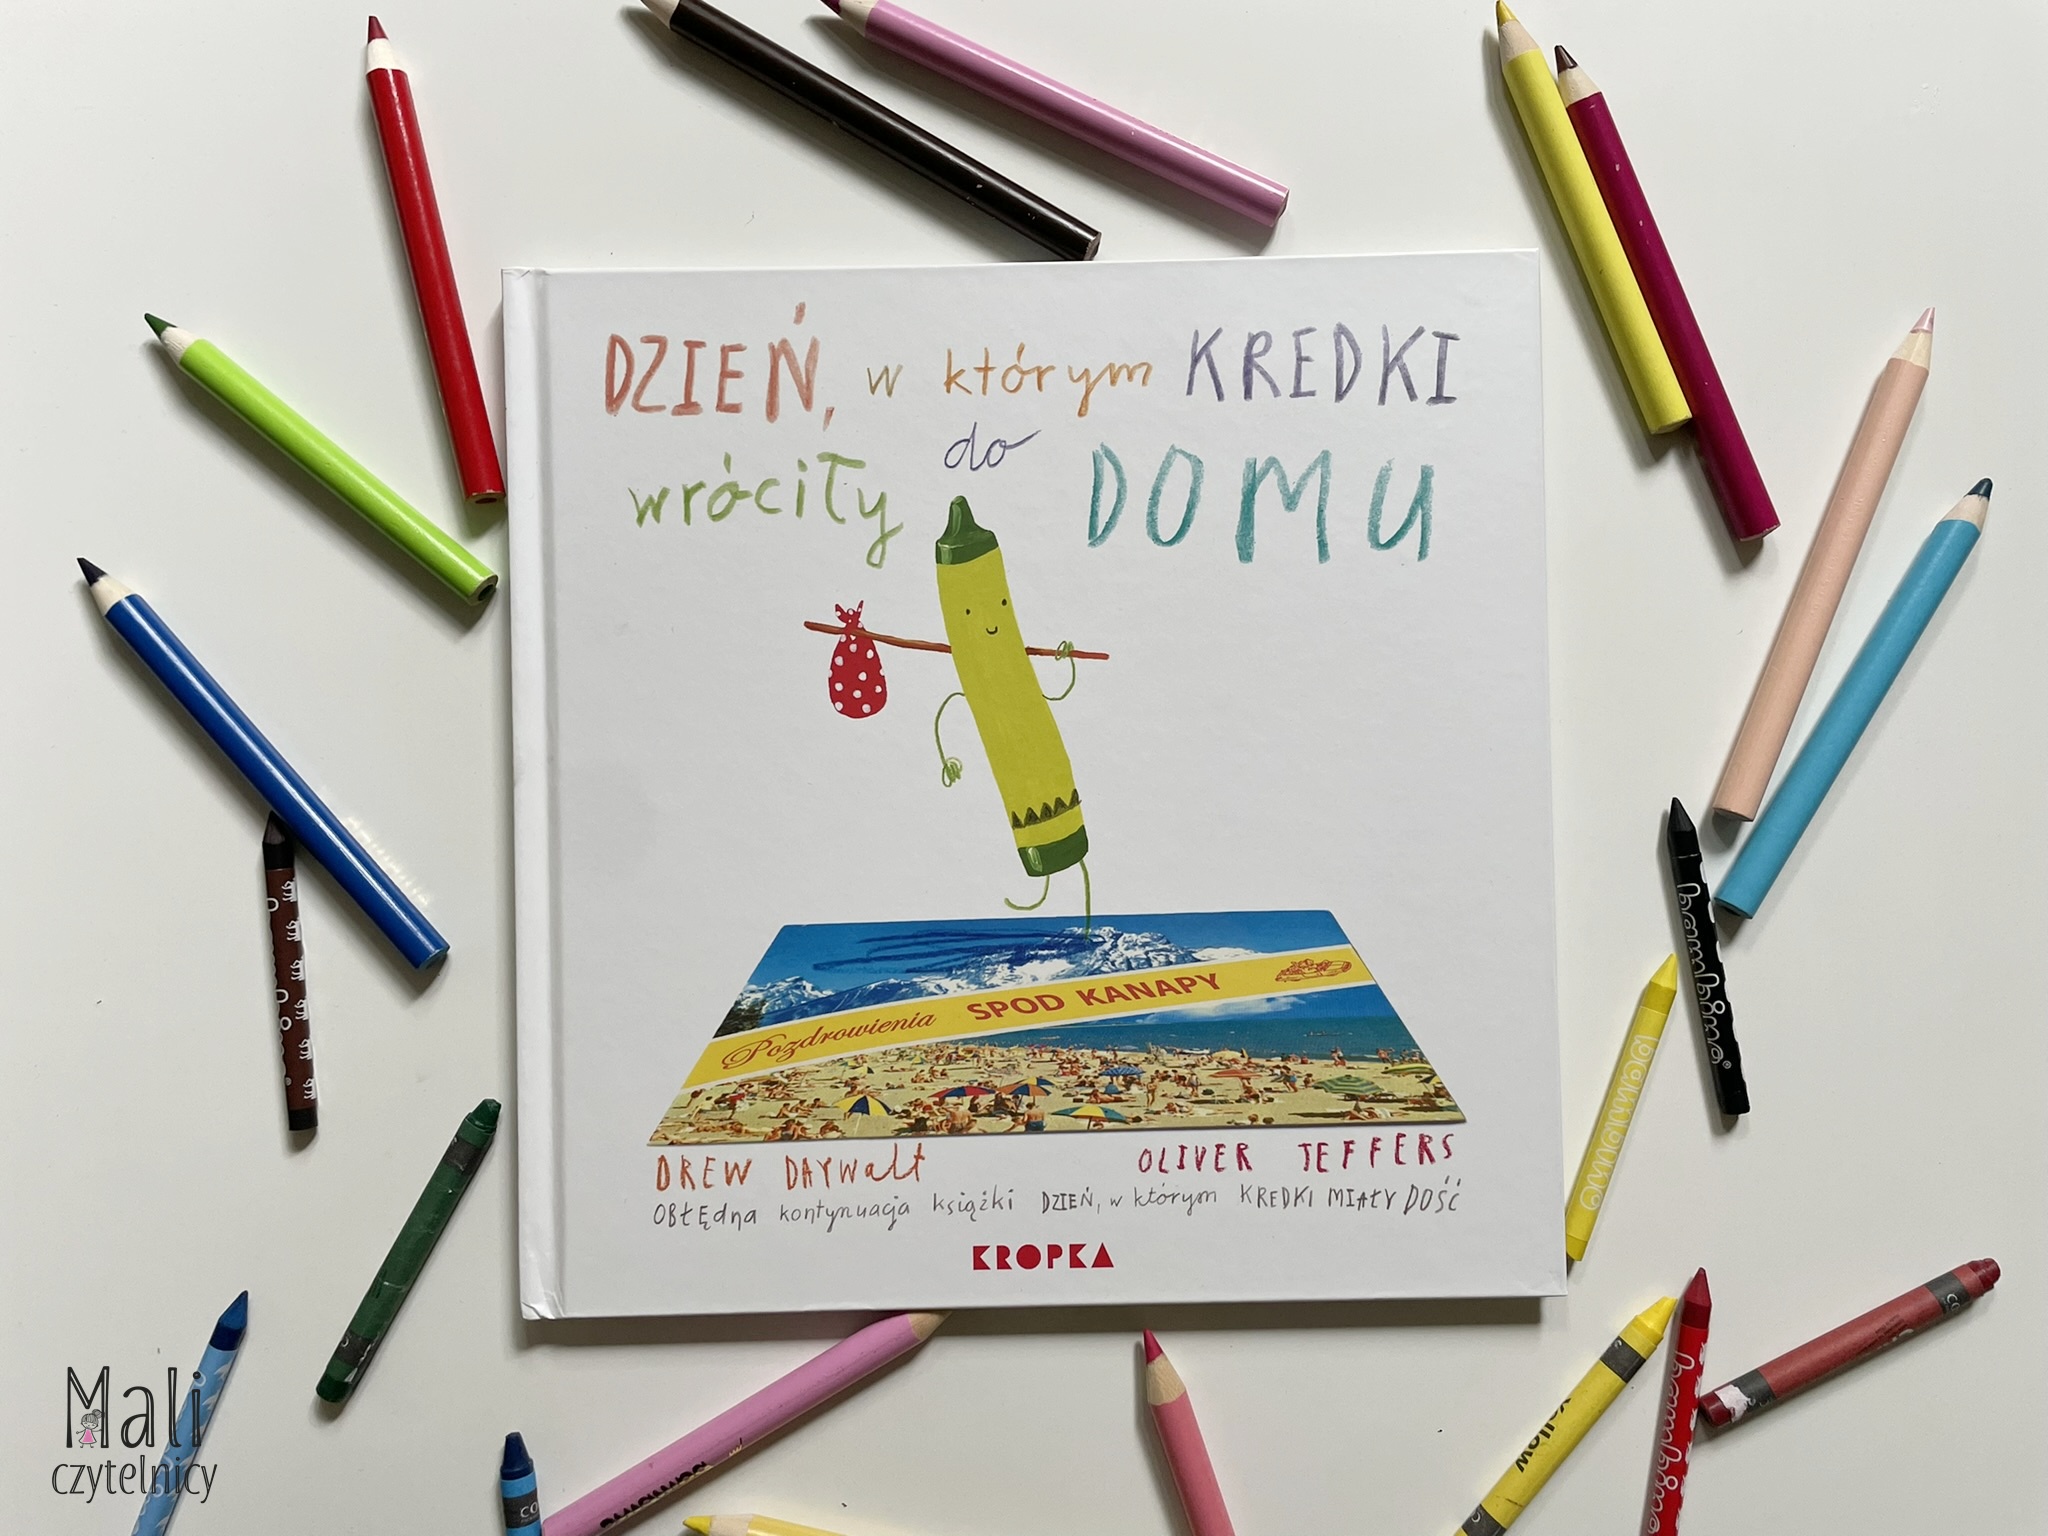 DZIEŃ, w którym KREDKI
wróciły do DOMU
Pozdrowienia SPOD KANAPY
DREW DAYWalt
OLIVER JEFFERS
OBŁĘdna kontynuacja książki DZIEŃ, w którym KREDKI MIAŁY DOŚĆ
KROPKA
bambino
yellow
Mali
czytelnicy